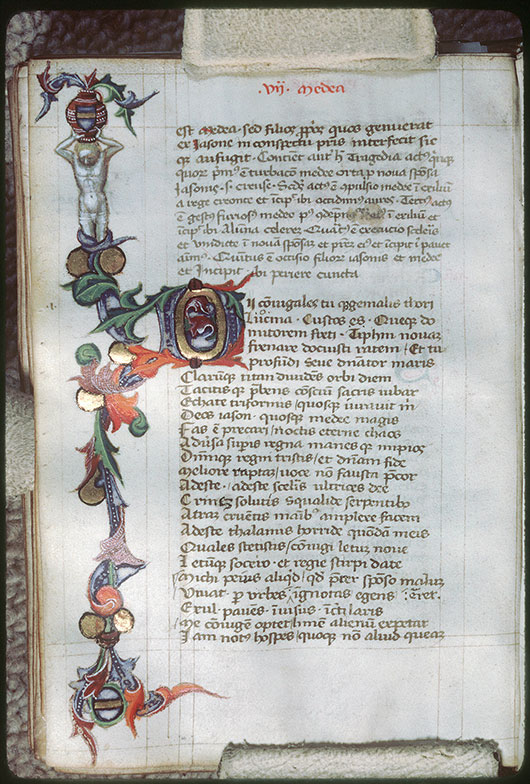 .VII. Medea
est Medea. sed filios ppōs quos genuerat
ex Iasone in conspectu pris interfecit sic
que aufugit. Continet autē h̄ Tragedia actus
quor primus ē turbacio medee orta p noua sposa
Iasonis. s. creuse. Scd̄s actus ē expulsio medee ī exiliū
a rege creonte et īcipit ibi occidimus aures. Tercius actus
ē gestus furiosus medee ī exiliū et
īcipit ibi Alūna celerem. Quartus ē execucio sceleris
et vindicte ī nouā sposam et prēm et īcipit ī pauet
aīmus. Quītus ē occisio filiorum iasonis et medee
et Incipit ibi periere cuncta
Dii coniugales tu qȝ genialis thori
lucina. Custos es. Queqȝ do
mitorem freti. Tiphin nouam
frenare docuisti ratem / Et tu
profundi seue dnator maris
Clarumqȝ titan diuidens orbi diem
Tacitisqȝ p̄bens cōsciū sacris iubar
Echate triformis / quosqȝ iurauit m̄
Deos iason. quosqȝ medee magis
Fas ē precari / noctis eterne chaos
Aduersa supis regna manesqȝ impios
Dn̄mqȝ regni tristis / et dnam fide
Meliore raptam / uoce nō fausta p̄cor
Adeste. adeste sceleris ultrices dee
Crinem solutis squalide serpentibus
Atram cruentis manibus amplexe facem
Adeste thalamis horride quōdam meis
Quales stetistis / cōiugi letum noue
Letumqȝ socero. et regie stirpi date
Michi peius aliqd / qd p̄cer sposo malum
Viuat. p urbes / ignotas egens / erret
Exul. pauēs. īuisus. īcerti laris
Me cōiugem optet / limē alienū expetat
Iam notus hospes / quoqȝ non aliud queam